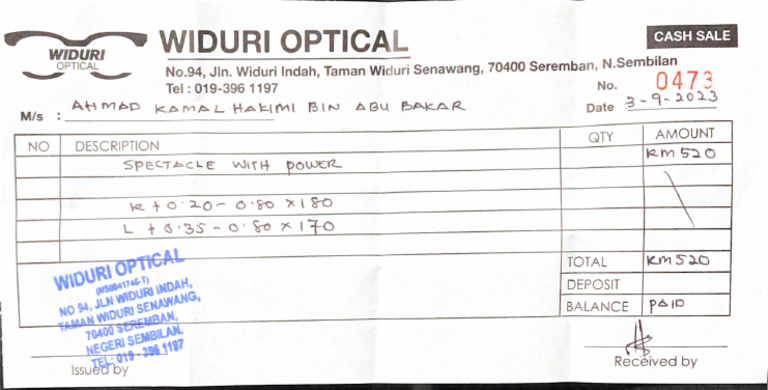 WIDURI OPTICAL
WIDURI OPTICAL
CASH SALE
No.94, Jln. Widuri Indah, Taman Widuri Senawang, 70400 Seremban, N.Sembilan
Tel : 019-396 1197
No. 0473
M/s : AHMAD KAMAL HAKIMI BIN ABU BAKAR
Date 3-9-2023
NO DESCRIPTION QTY AMOUNT
SPECTACLE WITH POWER RM 520
R + 0.20 - 0.80 x 180
L + 0.35 - 0.80 x 170
TOTAL RM 520
DEPOSIT
BALANCE PAID
WIDURI OPTICAL
NO 94, JLN WIDURI INDAH,
TAMAN WIDURI SENAWANG,
70400 SEREMBAN,
NEGERI SEMBILAN.
TEL: 019 - 396 1197
Issued by
Received by